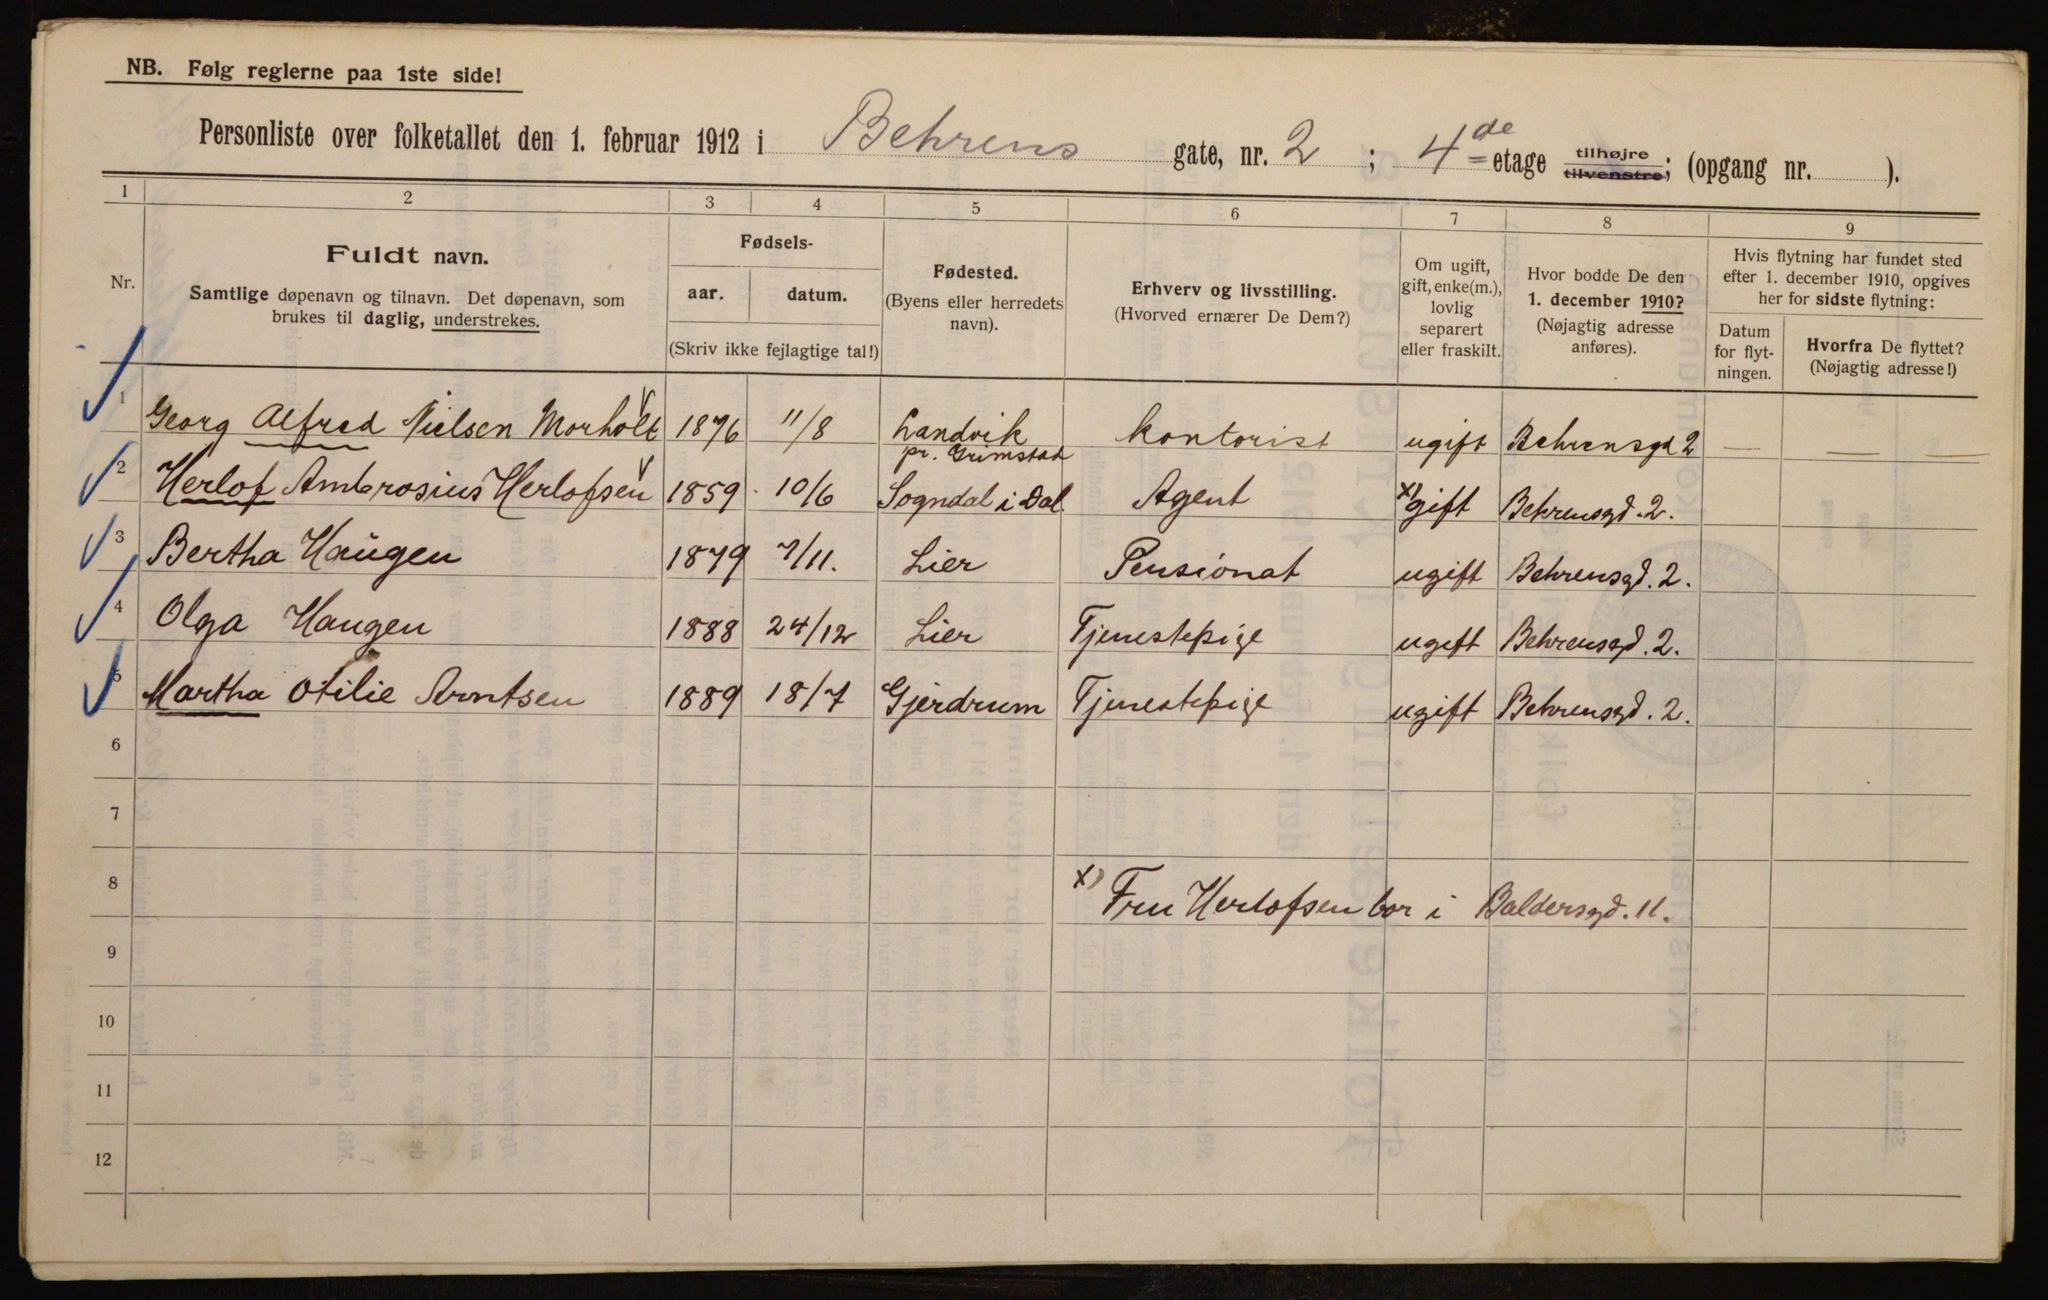 NB. Følg reglerne paa 1ste side!
Personliste over folketallet den 1. februar 1912 i Behrens gate, nr. 2 ; 4de etage tilhøjre tilvenstre; (opgang nr. ).
1 2 3 4 5 6 7 8 9
Nr.
Fuldt navn.
Samtlige døpenavn og tilnavn. Det døpenavn, som
brukes til daglig, understrekes.
Fødsels-
aar. datum.
(Skriv ikke fejlagtige tal!)
Fødested.
(Byens eller herredets
navn).
Erhverv og livsstilling.
(Hvorved ernærer De Dem?)
Om ugift,
gift, enke(m.),
lovlig
separert
eller fraskilt.
Hvor bodde De den
1. december 1910?
(Nøjagtig adresse
anføres).
Hvis flytning har fundet sted
efter 1. december 1910, opgives
her for sidste flytning:
Datum
for flyt-
ningen.
Hvorfra De flyttet?
(Nøjagtig adresse!)
1 Georg Alfred Nielsen Morholt 1876 11/8 Landvik pr. Grimstad kontorist ugift Behrensgd 2 — — —
2 Herlof Ambrosius Herlofsen 1859 10/6 Sogndal i Dal. Agent x) gift Behrensgd. 2.
3 Bertha Haugen 1879 7/11. Lier Pensionat ugift Behrensgd. 2.
4 Olga Haugen 1888 24/12 Lier Tjenestepige ugift Behrensgd. 2.
5 Martha Otilie Arntsen 1889 18/7 Gjerdrum Tjenestepige ugift Behrensgd. 2.
6
7
8 x) Fru Herlofsen bor i Baldersgd. 11.
9
10
11
12